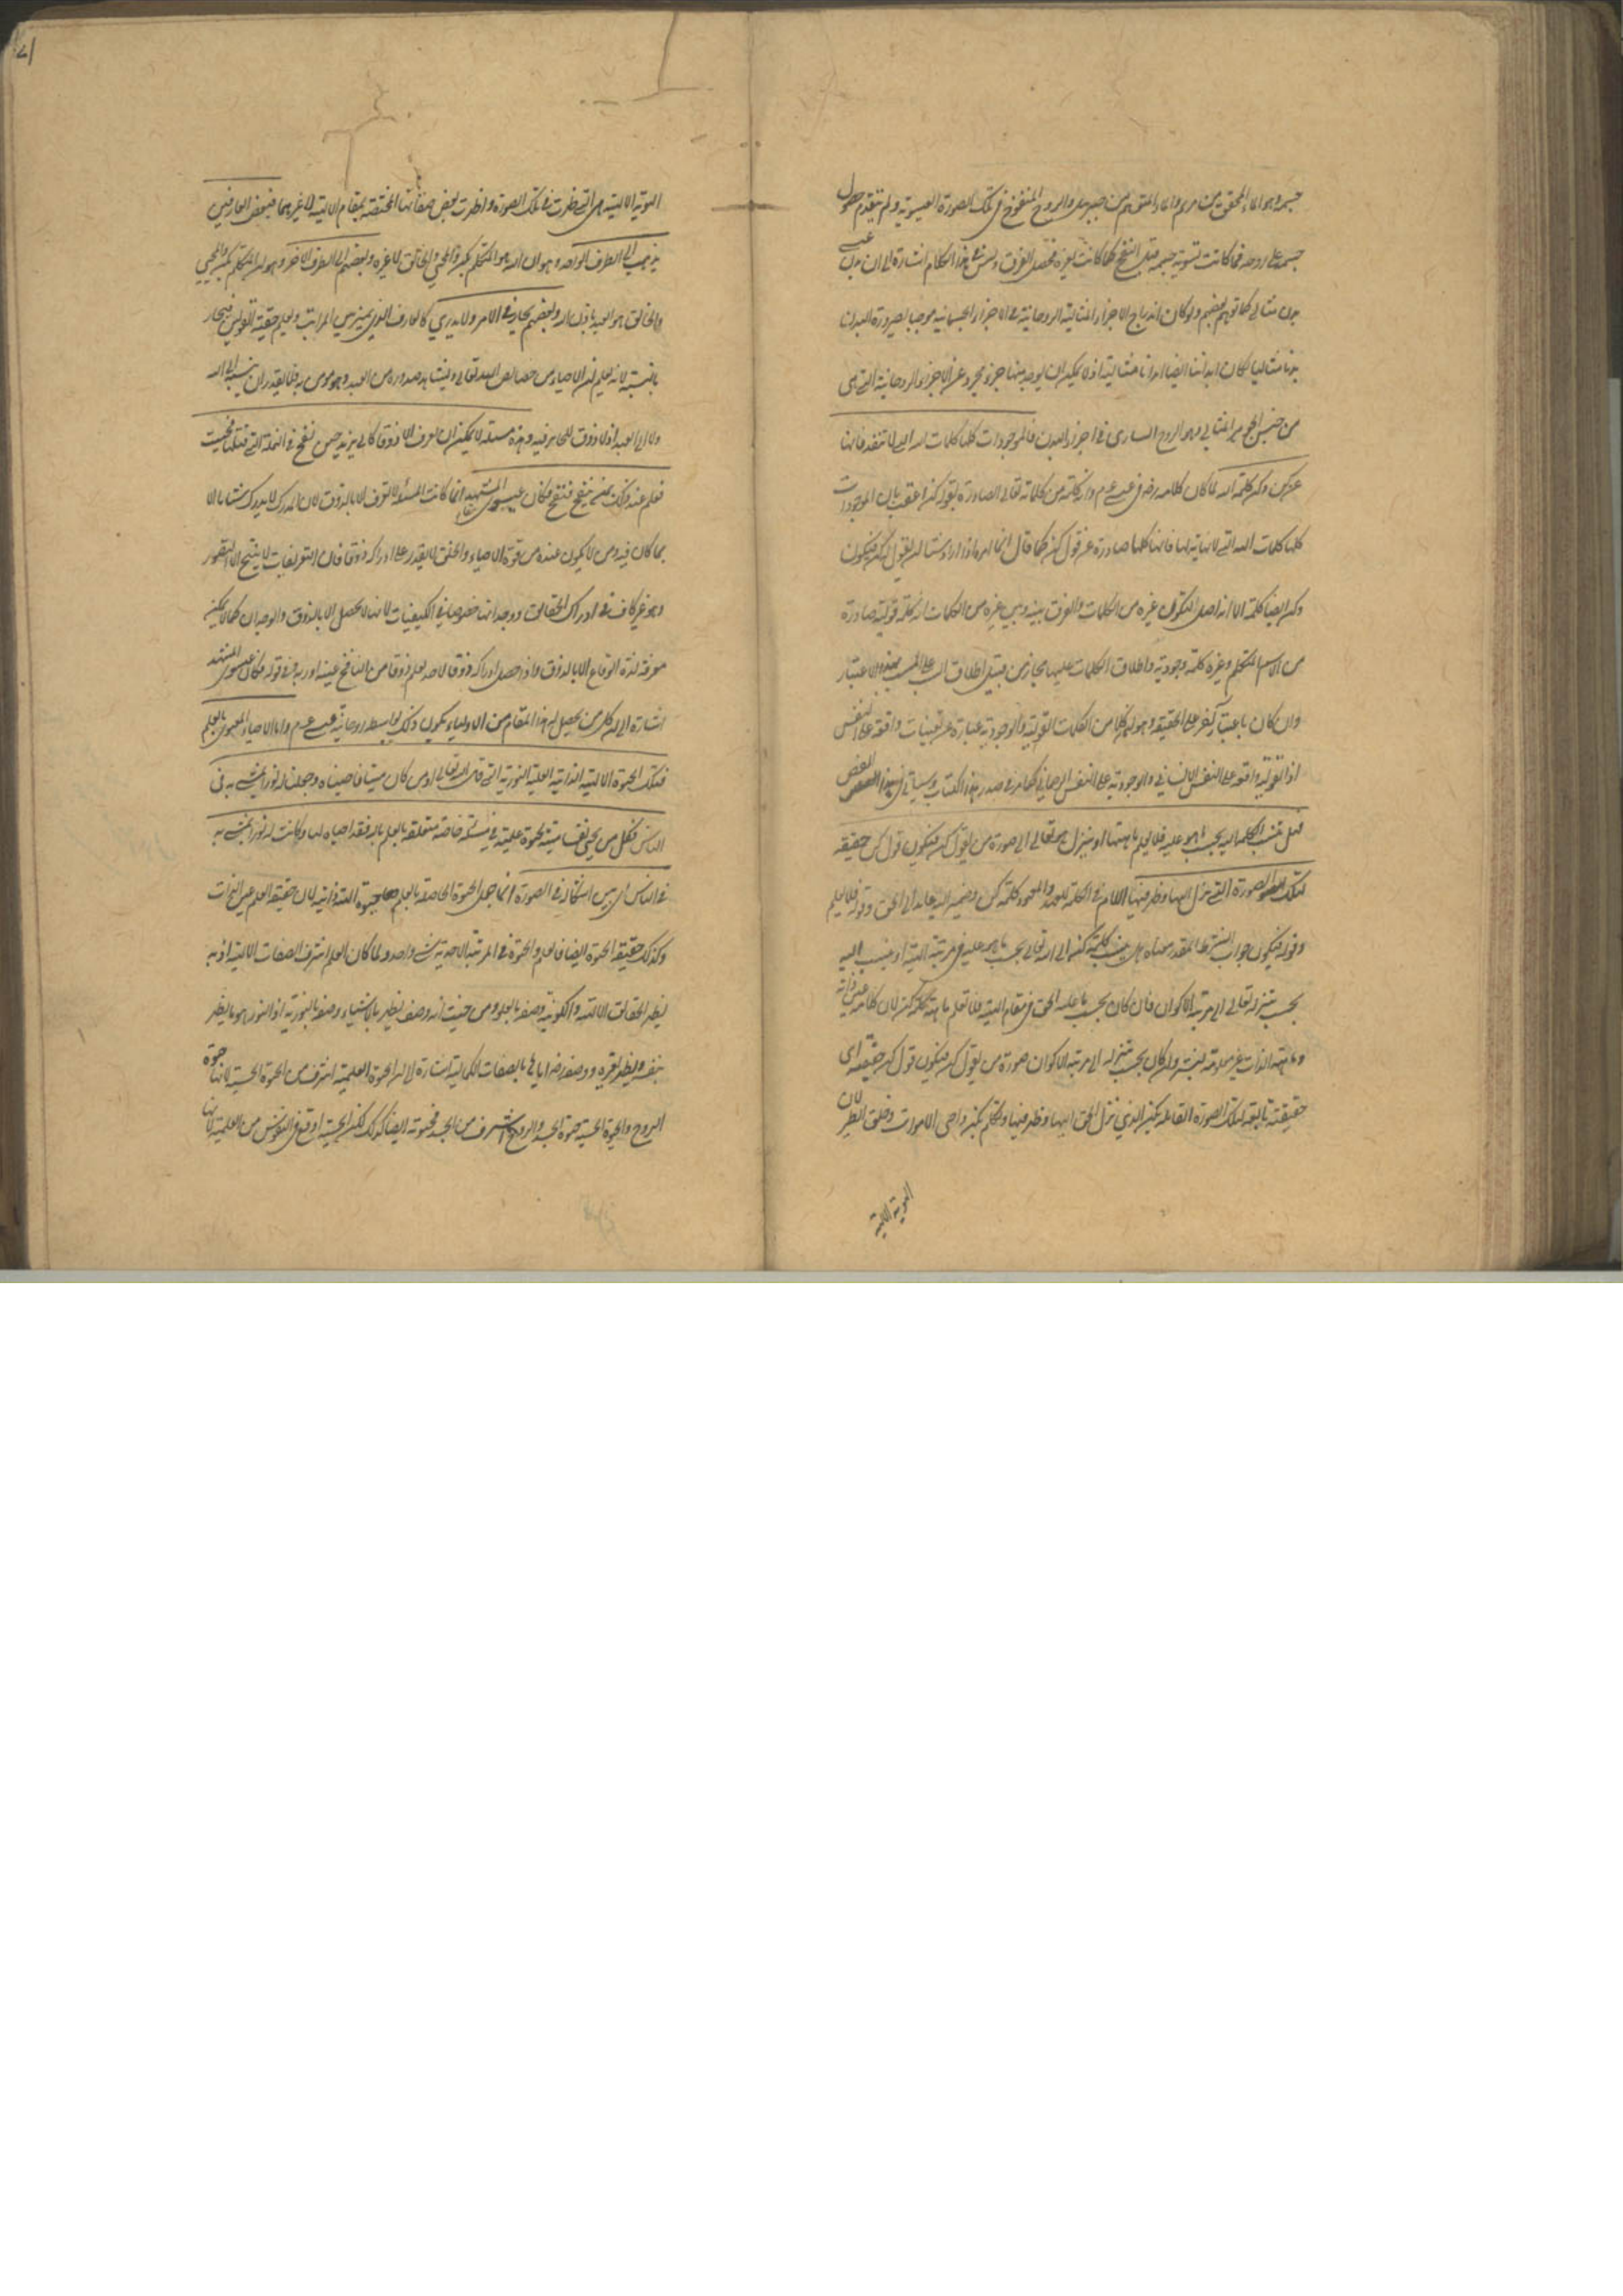 جسمه وهو الماء المحقق من مريم والماء المتوهم من جبريل والروح المنفوخ في تلك الصورة العيسوية ولم يتقدم حصول
جسمه على روحه فما كانت تسوية جسمه قبل النفخ كما كانت لغيره فحصل الفرق وليس في هذا الكلام اشارة الى ان بدن عيسى
بدن مثالي كما توهم بعضهم ولو كان اندراج الاجزاء المثالية الروحانية في الاجزاء الجسمانية موجبا لصيرورة البدن
بدنا مثاليا لكان ابداننا ايضا ابدانا مثالية اذ لا يمكن ان يوجد منها جزء مجرد عن الاجزاء الروحانية التي هي
من جنس الجوهر المثالي وهو الروح الساري في اجزاء البدن فالموجودات كلها كلمات الله التي لا تنفد فانها
عن كن وكن كلمة الله لما كان كلامه رضه في عيسى عم وانه كلمة من كلماته تعالى الصادرة بقوله كن اعقب بان الموجودات
كلها كلمات الله التي لا نهاية لها فانها كلها صادرة عن قول كن كما قال انما امره اذا اراد شيئا ان يقول له كن فيكون
وكن ايضا كلمة الا انه اصل لتكون غيره من الكلمات والفرق بينه وبين غيره من الكلمات انه كلمة قولية صادرة
من الاسم المتكلم وغيره كلمة وجودية واطلاق الكلمات عليها مجاز من قبيل اطلاق السبب على المسبب بهذا الاعتبار
وان كان باعتبار آخر على الحقيقة وهو ان كلا من الكلمات القولية والوجودية عبارة عن تعينات واقعة على النفس
اذ القولية واقعة على النفس الانساني والوجودية على النفس الرحماني كما مر في صدر هذا الكتاب وسياتي في هذا الفص
فهل تنسب الكلمة اليه بحسب ما هو عليه فلا يعلم ماهيتها او ينزل هو تعالى الى صورة من يقول كن فيكون قول كن حقيقة
لتلك الصورة التي نزل اليها وظهر فيها اللام في الكلمة للعهد والمعهود كلمة كن وضمير اليه عائد الى الحق وقوله فلا يعلم
وقوله فيكون جواب الشرط المقدر معناه هل ينسب كلمة كن الى الله تعالى بحسب ما هو عليه في مرتبة الهية او ينسب اليه
بحسب تنزله تعالى الى مرتبة الاكوان فان كان بحسب ما عليه الحق في مقام الهيته فلا تعلم ماهية كلمة كن لان كلامه عين ذاته
وماهية الذات غير معلومة للبشر وان كان بحسب تنزله الى مرتبة الاكوان صورة من يقول كن فيكون قول كن حقيقة اى
حقيقة تابعة لتلك الصورة القائلة بكن الذي نزل الحق اليها وظهر فيها وتكلم بكن واحى الاموات وخلق الطير لان
الهوية الالهية
الهوية الالهية هي التي ظهرت في تلك الصورة واظهرت بعض صفاتها المختصة بمقام الالهية لا غيرها فبعض العارفين
يذهب الى الطرف الواحد وهو ان الله هو المتكلم بكن والمحيي والخالق لا غيره وبعضهم الى الطرف الاخر وهو ان المتكلم بكن والمحيي
والخالق هو العبد باذن الله وبعضهم يحار في الامر ولا يدري كالعارف الذي يميز بين المراتب ويعلم حقيقة القولين فيحار
بالنسبة لانه يعلم ان الاحياء من خصائص الله تعالى ويشاهد صدوره من العبد وهو مؤمن به فلا يقدر ان ينسبه الى الله
ولا الى العبد اذ لا ذوق للحائر فيه وهذه مسئلة لا يمكن ان تعرف الا ذوقا كابي يزيد حين نفخ في النملة التي قتلها فحييت
فعلم عند ذلك بمن ينفخ فنفخ فكان عيسوي المشهد انما كانت المسئلة لا تعرف الا بالذوق لان المدرك لا يدرك شيئا ما الا
بما كان فيه ومن لا يكون عنده من قوة الاحياء والخلق لا يقدر على ادراكه ذوقا فان التعريفات لا ينتج الا التصور
وهو غير كاف في ادراك الحقائق ووجدانها خصوصا في الكيفيات لانها لا تحصل الا بالذوق والوجدان كما لا يمكن
معرفة لذة الوقاع الا بالذوق واذا حصل ادراكه ذوقا لاحد يعلم ذوقا من النافخ عينه او ربه وفي قوله فكان عيسوي المشهد
اشارة الى ان كل من يحصل له هذا المقام من الاولياء يكون ذلك بواسطة روحانية عيسى عم واما الاحياء المعنوي بالعلم
فتلك الحيوة الالهية الذاتية العلية النورية التي قال الله تعالى اومن كان ميتا فاحييناه وجعلنا له نورا يمشي به في
الناس فكل من يحيي نفسا ميتة بحيوة علمية في مسئلة خاصة متعلقة بالعلم بالله فقد احياه بها وكانت له نورا يمشي به
في الناس اي بين اشكاله في الصورة انما جعل الحيوة الحاصلة بالعلم حيوة الهية ذاتية لان حقيقة العلم عين الذات
وكذلك حقيقة الحيوة ايضا فالعلم والحيوة في المرتبة الاحدية شيء واحد ولما كان العلم اشرف الصفات الالهية اذ به
يظهر الحقائق الالهية والكونية وصفه بالعلو ومن حيث انه وصف يظهر به الاشياء وصفه بالنورية اذ النور هو ما يظهر
بنفسه ويظهر لغيره ووصفه رضه اياها بالصفات الكمالية اشارة الى ان الحيوة العلمية اشرف من الحيوة الحسية لانها حيوة
الروح والحيوة الحسية حيوة الجسد والروح اشرف من الجسد فحيوته ايضا كذلك لكن الحسية اوقع في النفوس من العلمية لانها